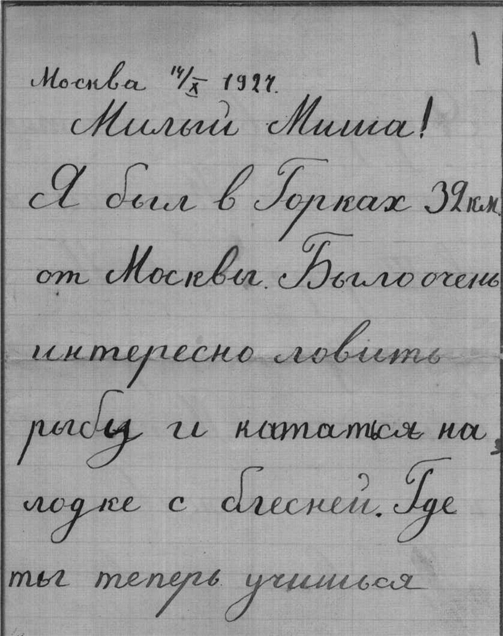 1
Москва 14/X 1927.
Милый Миша!
Я был в Горках 39км
от Москвы. Было очень
интересно ловить
рыбу и кататься на
лодке с блесней. Где
ты теперь учишься